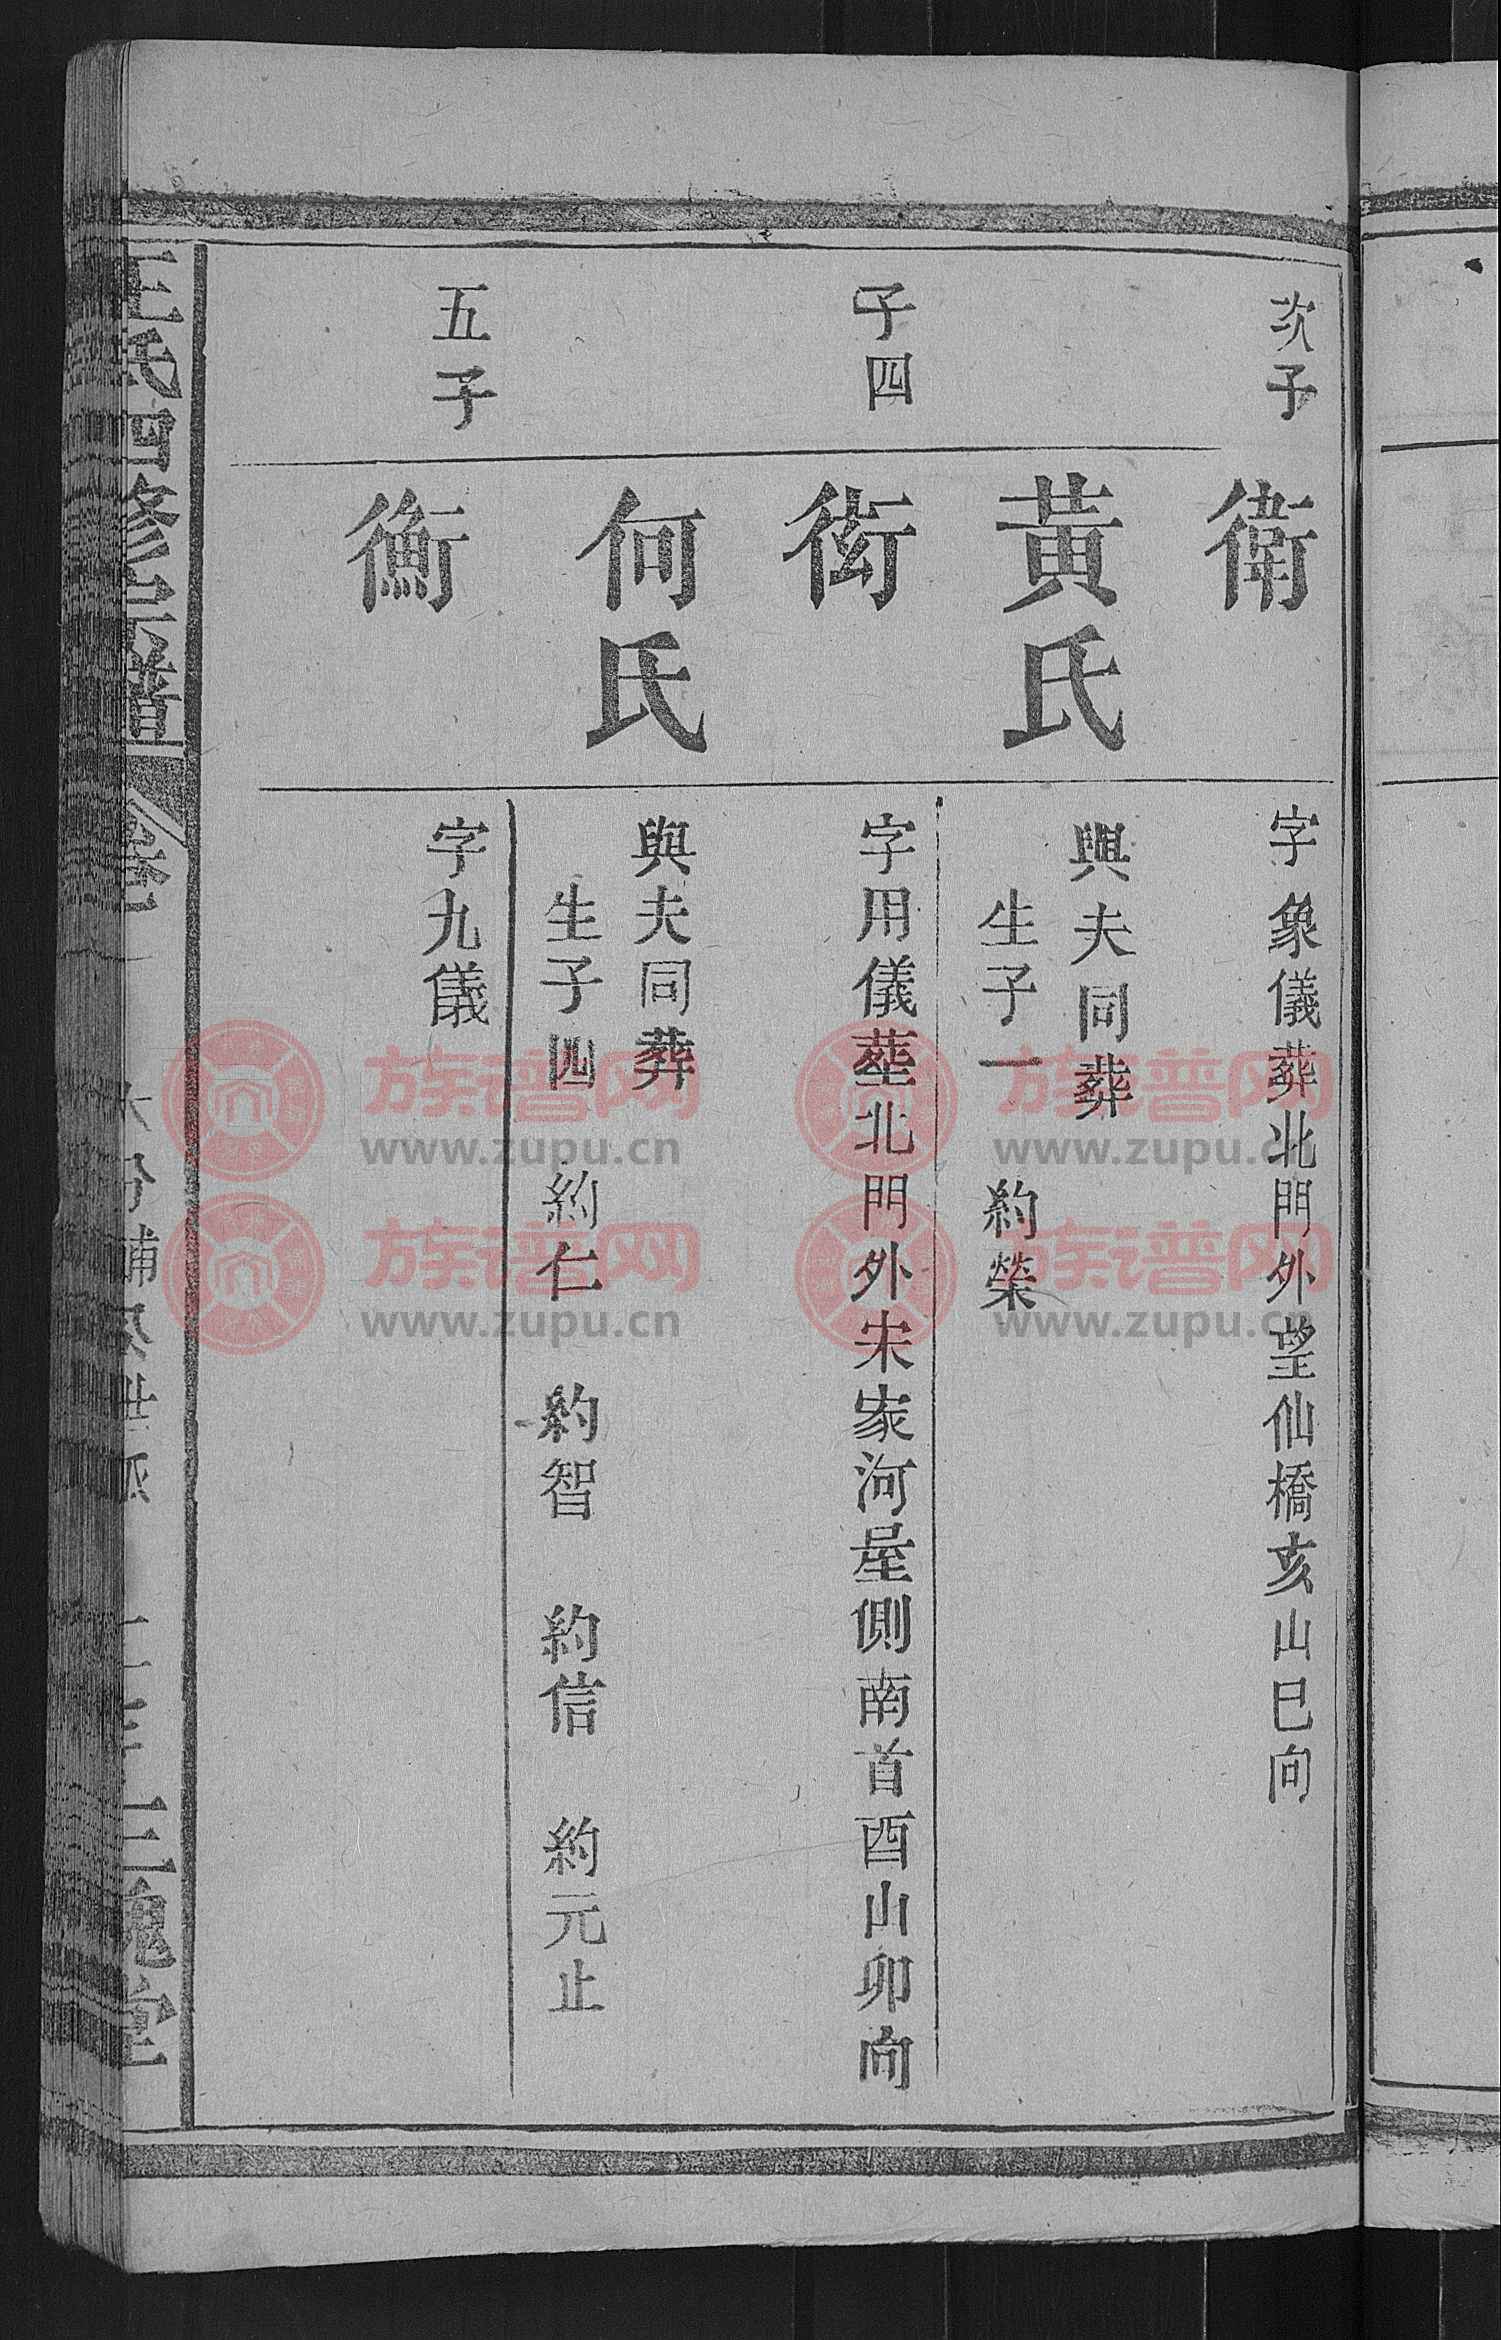 次子
衛
字象儀葬北門外望仙橋亥山巳向
黃氏
與夫同葬
生子一　約榮
子四
字用儀塟北門外宋家河屋側南首酉山卯向
何氏
與夫同葬
生子四　約仁　約智　約信　約元止
五子
衡
字九儀
王氏四修宗譜
卷
三槐堂
族谱网
www.zupu.cn
族谱网
www.zupu.cn
族谱网
www.zupu.cn
族谱网
www.zupu.cn